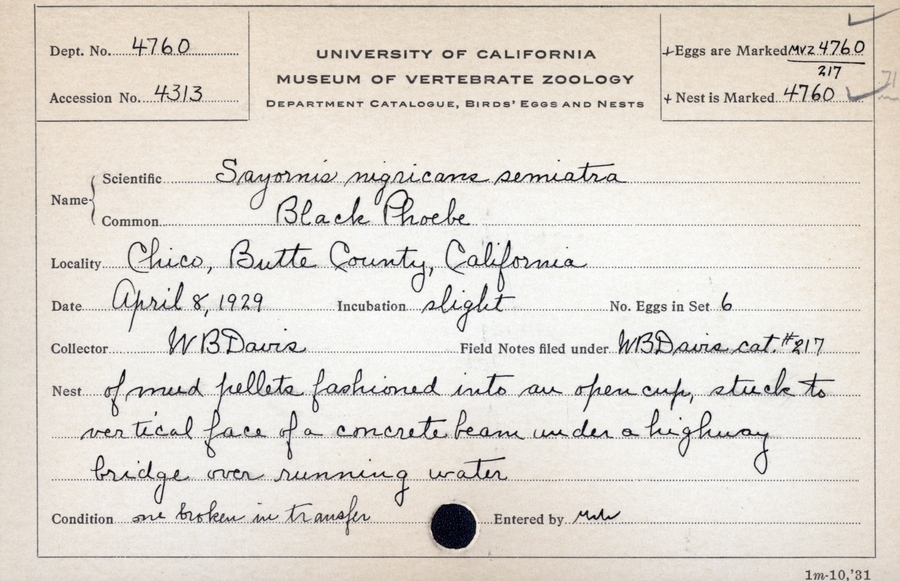 Dept. No. 4760
Accession No. 4313
UNIVERSITY OF CALIFORNIA
MUSEUM OF VERTEBRATE ZOOLOGY
DEPARTMENT CATALOGUE, BIRDS' EGGS AND NESTS
+Eggs are Marked MVZ 4760
217
+ Nest is Marked 4760
Name
Scientific Sayornis nigricans semiatra
Common Black Phoebe
Locality Chico, Butte County, California
Date April 8, 1929 Incubation slight No. Eggs in Set 6
Collector WBDavis Field Notes filed under WBDavis cat. #217
Nest of mud pellets fashioned into an open cup, stuck to
vertical face of a concrete beam under a highway
bridge over running water
Condition one broken in transfer Entered by
1m-10,'31